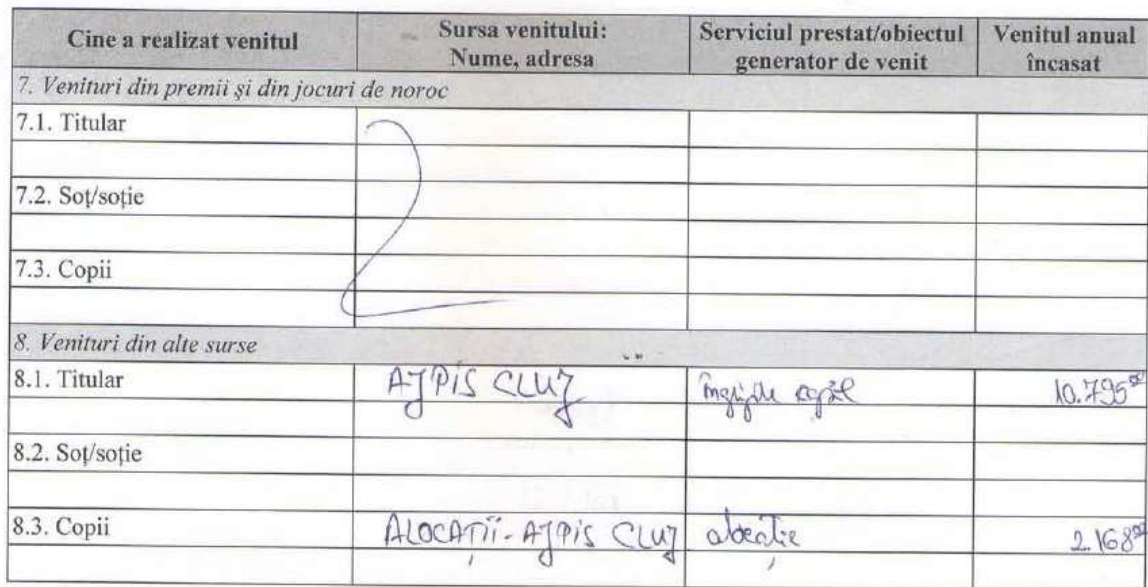 Cine a realizat venitul Sursa venitului: Nume, adresa Serviciul prestat/obiectul generator de venit Venitul anual încasat
7. Venituri din premii și din jocuri de noroc
7.1. Titular
7.2. Soț/soție
7.3. Copii
8. Venituri din alte surse
8.1. Titular AJPIS CLUJ îngrijire copil 10.795
8.2. Soț/soție
8.3. Copii ALOCAȚII - AJPIS CLUJ alocație 2.168